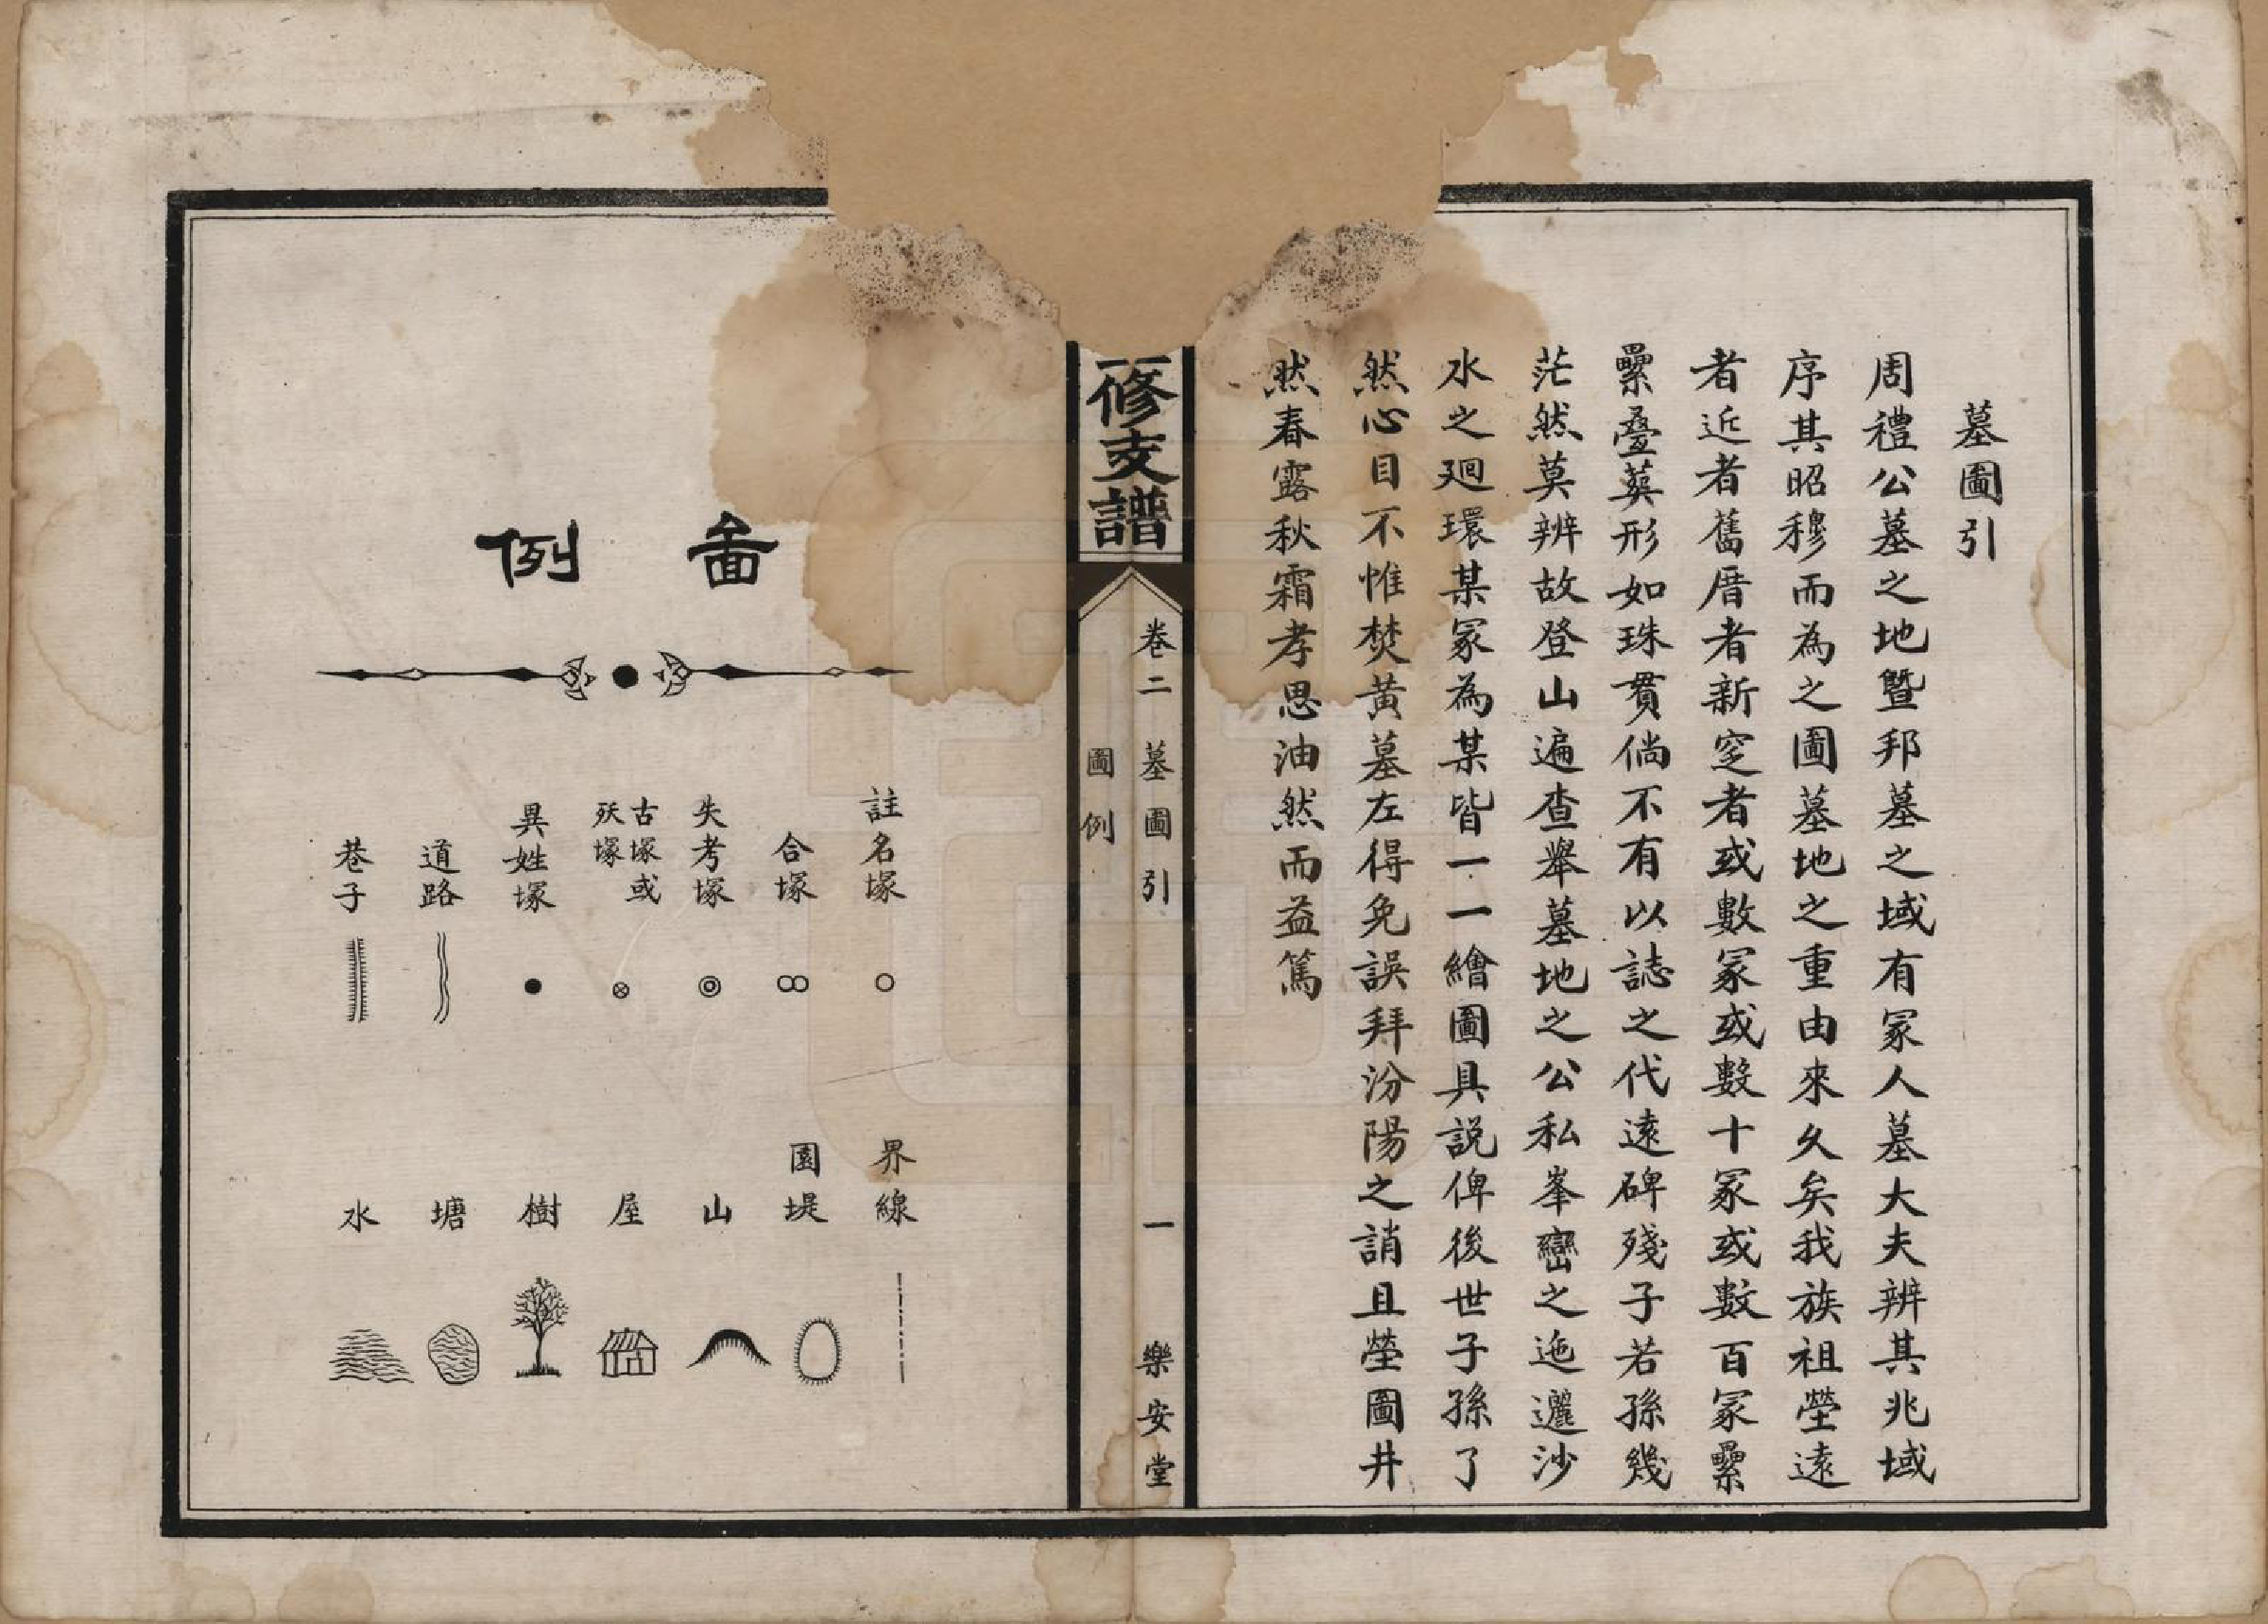 墓圖引
周禮公墓之地暨邦墓之域有冢人墓大夫辨其兆域
序其昭穆而為之圖墓地之重由來久矣我族祖塋遠
者近者舊厝者新窆者或數冢或數十冢或數百冢纍
纍疊葬形如珠貫倘不有以誌之代遠碑殘子若孫幾
茫然莫辨故登山遍查舉墓地之公私峯巒之迤邐沙
水之廻環某冢為某皆一一繪圖具説俾後世子孫了
然心目不惟焚黃墓左得免誤拜汾陽之誚且塋圖井
然春露秋霜孝思油然而益篤
修支譜
卷二 墓圖引 一 樂安堂
圖例
圖例
註名塚
合塚
失考塚
古塚或
殀塚
異姓塚
道路
巷子
界線
園堤
山
屋
樹
塘
水